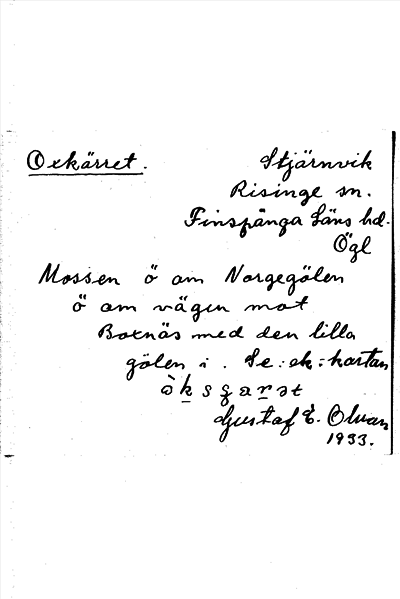 Oxkärret.
Stjärnvik
Risinge sn.
Finspånga Läns hd.
Ögl
Mossen ö om Norgegölen
ö om vägen mot
Botnäs med den lilla
gölen i. Se: ek: kartan
Gustaf E.
1933.